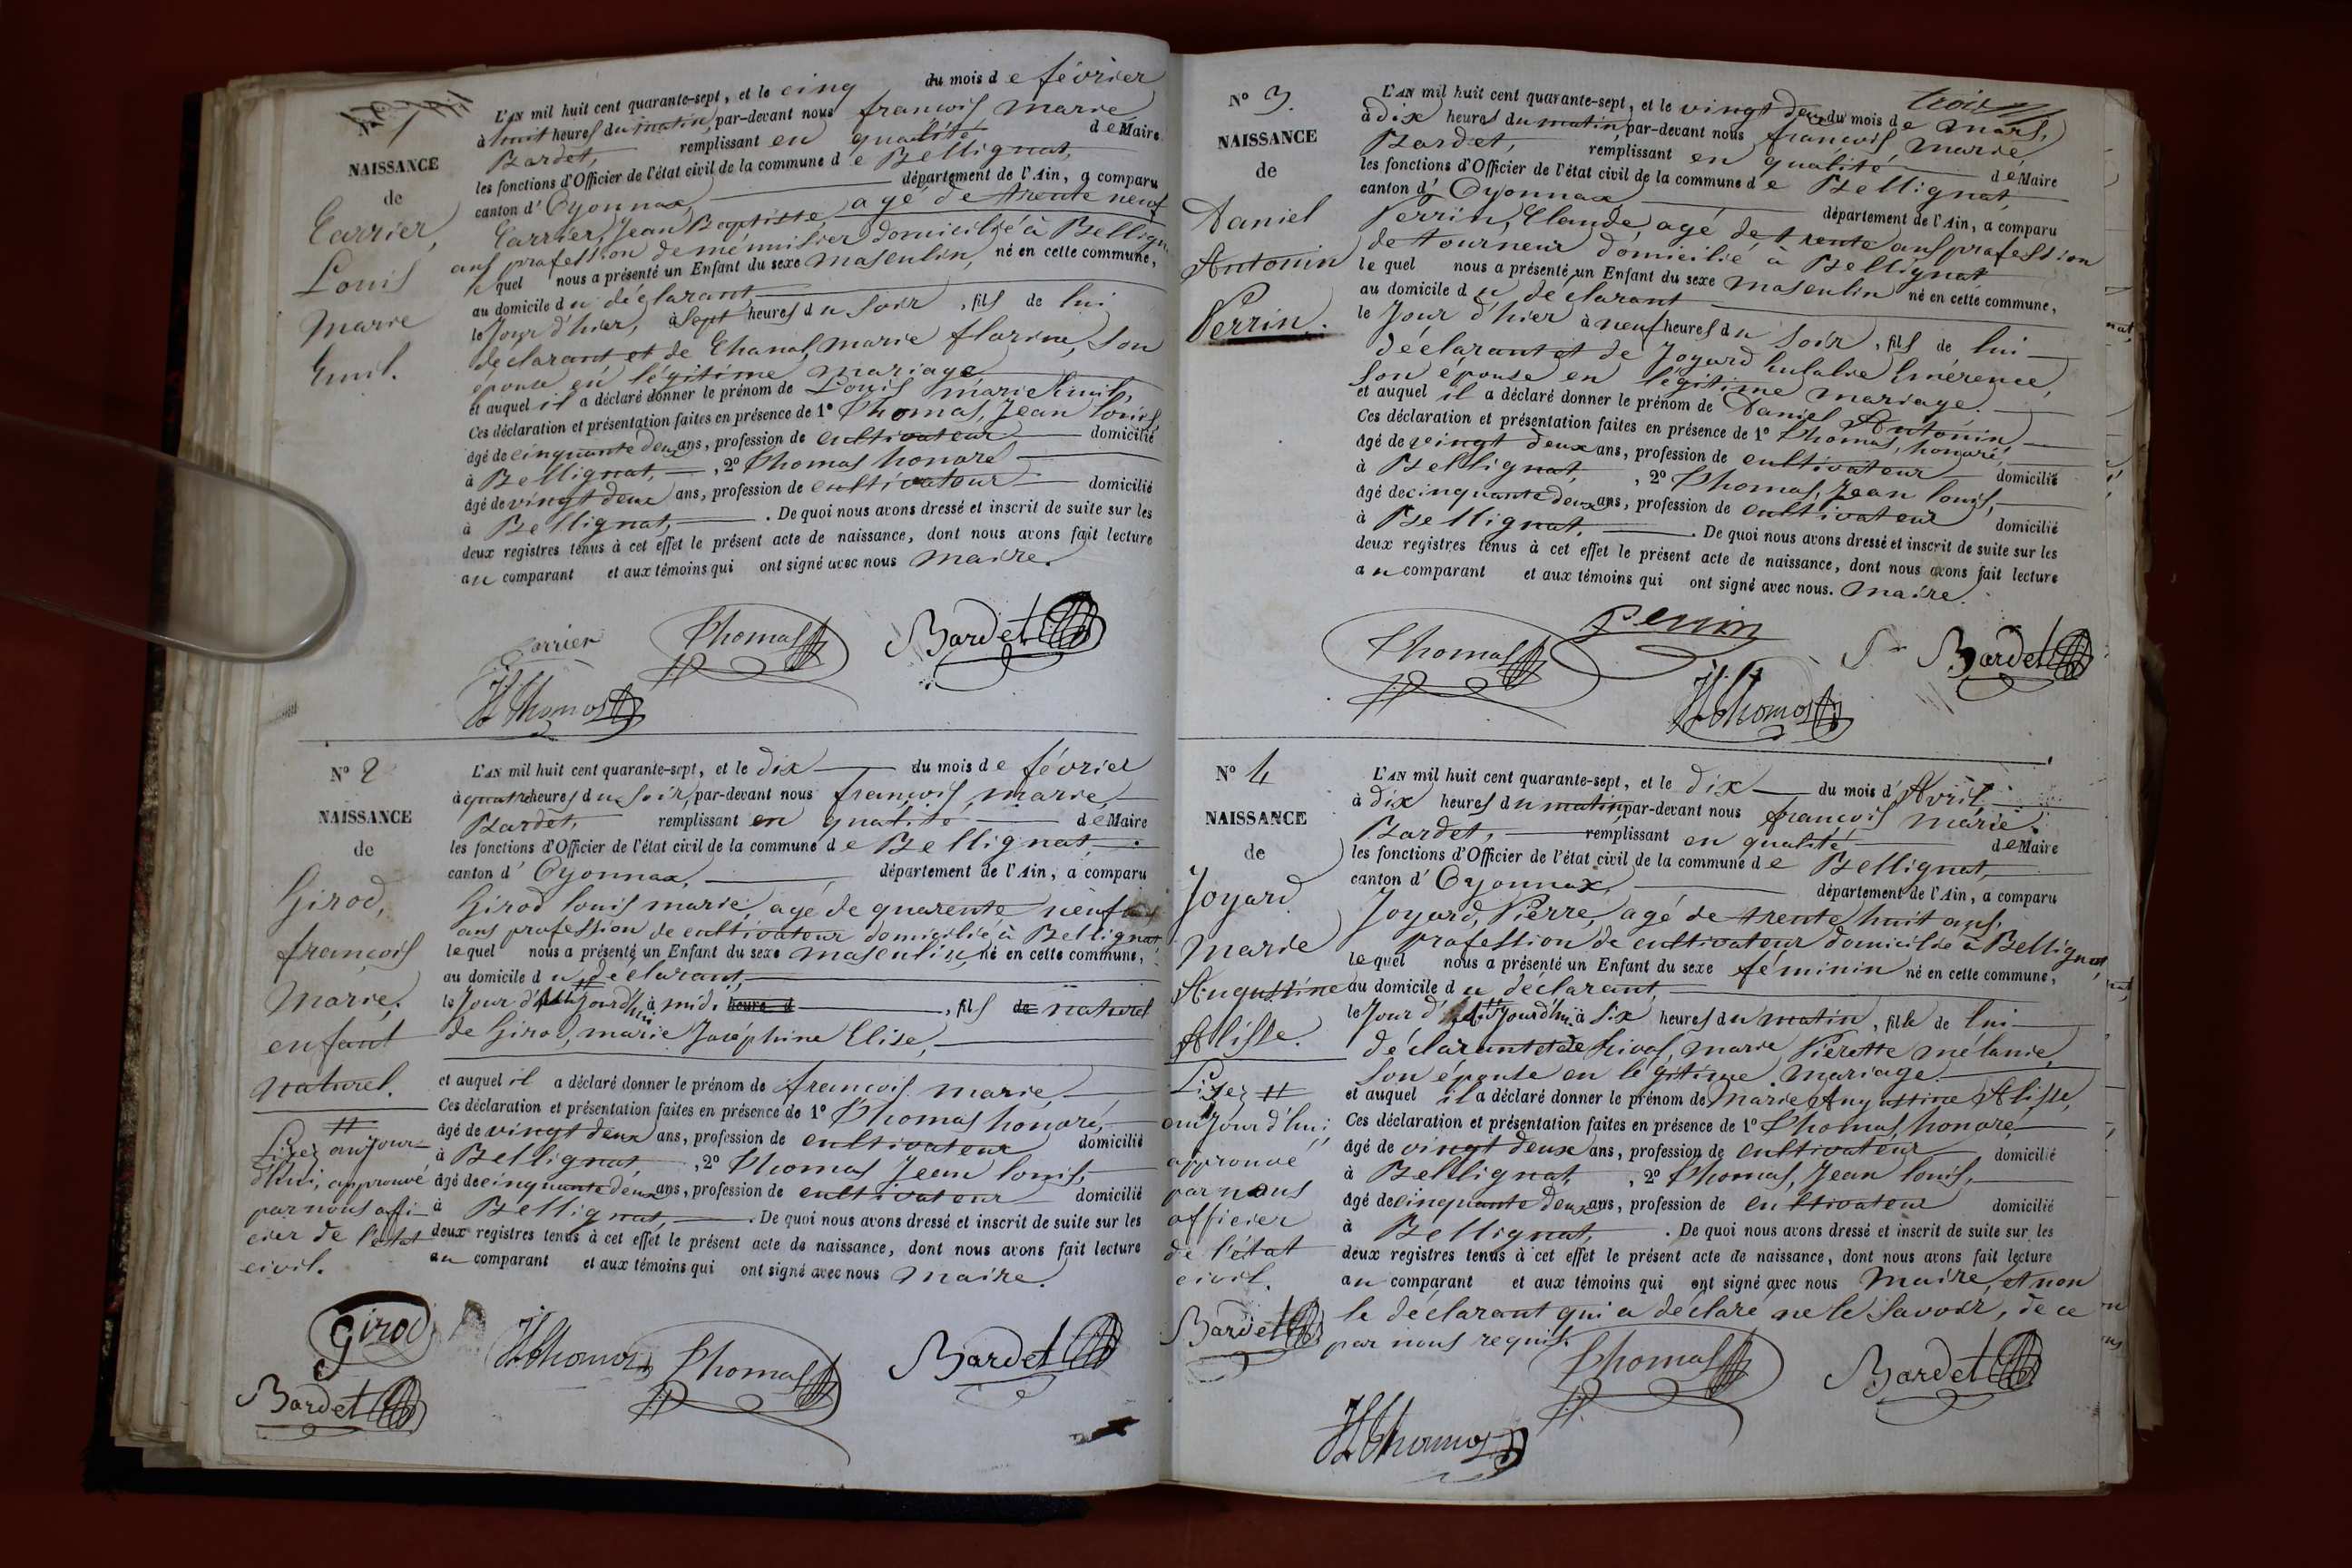 N° 1
NAISSANCE
de
Carrier,
Louis
Marie
Emil.
L'AN mil huit cent quarante-sept, et le cinq du mois de février
à huit heures du matin, par-devant nous françois marie
Bardet, remplissant en qualité de Maire
les fonctions d'Officier de l'état civil de la commune de Bellignat,
canton d'Oyonnax, département de l'Ain, a comparu
Carrier, Jean Baptiste, agé de trente neuf
ans profession de ménuisier domicilié à Bellign
le quel nous a présenté un Enfant du sexe masculin, né en cette commune,
au domicile du déclarant,
le Jour d'hier, à Sept heures du soir, fils de lui
déclarant et de Chanal, marie florine, son
épouse en légitime mariage
et auquel il a déclaré donner le prénom de Louis marie Emil,
Ces déclaration et présentation faites en présence de 1° Thomas, Jean louis,
âgé de cinquante deux ans, profession de cultivateur domicilié
à Bellignat, , 2° Thomas honoré
âgé de vingt deux ans, profession de cultivateur domicilié
à Bellignat, . De quoi nous avons dressé et inscrit de suite sur les
deux registres tenus à cet effet le présent acte de naissance, dont nous avons fait lecture
au comparant et aux témoins qui ont signé avec nous maire.
Carrier Thomas Bardet
H Thomas
N° 2
NAISSANCE
de
Girod,
françois
marie,
enfant
naturel.
#
Lisez aujour-
d'hui, approuvé
par nous offi-
cier de l'état
civil.
L'AN mil huit cent quarante-sept, et le dix du mois de février
à quatre heures du soir, par-devant nous françois marie,
Bardet, remplissant en qualité de Maire
les fonctions d'Officier de l'état civil de la commune de Bellignat,
canton d'Oyonnax, département de l'Ain, a comparu
Girod louis marie, agé de quarente neuf
ans profession de cultivateur domicilié à Bellignat
le quel nous a présenté un Enfant du sexe masculin, né en cette commune,
au domicile du déclarant,
le Jour d' # Jourd'hui à midi heure d , fils de naturel
de Girod, marie Joséphine Elise,
et auquel il a déclaré donner le prénom de françois marie,
Ces déclaration et présentation faites en présence de 1° Thomas honoré,
âgé de vingt deux ans, profession de cultivateur domicilié
à Bellignat, , 2° Thomas Jean louis,
âgé de cinquante deux ans, profession de cultivateur domicilié
à Bellignat, . De quoi nous avons dressé et inscrit de suite sur les
deux registres tenus à cet effet le présent acte de naissance, dont nous avons fait lecture
au comparant et aux témoins qui ont signé avec nous maire.
Girod H Thomas Thomas Bardet
Bardet
trois
N° 3.
NAISSANCE
de
Daniel
Antonin
Perrin.
L'AN mil huit cent quarante-sept, et le vingt deux du mois de mars,
à dix heures du matin, par-devant nous françois, marie,
Bardet, remplissant en qualité de Maire
les fonctions d'Officier de l'état civil de la commune de Bellignat,
canton d'Oyonnax, département de l'Ain, a comparu
Perrin, Claude, agé de trente ans profession
de tourneur domicilié à Bellignat
le quel nous a présenté un Enfant du sexe masculin né en cette commune,
au domicile du déclarant
le Jour d'hier à neuf heures du soir, fils de lui
déclarant et de Joyard Eulalie Emérence,
son épouse en légitime mariage.
et auquel il a déclaré donner le prénom de Daniel Antonin
Ces déclaration et présentation faites en présence de 1° Thomas, honoré,
âgé de vingt deux ans, profession de cultivateur domicilié
à Bellignat, , 2° Thomas, Jean louis,
âgé de cinquante deux ans, profession de cultivateur domicilié
à Bellignat, . De quoi nous avons dressé et inscrit de suite sur les
deux registres tenus à cet effet le présent acte de naissance, dont nous avons fait lecture
au comparant et aux témoins qui ont signé avec nous. maire.
Thomas Perrin Bardet
H Thomas
N° 4
NAISSANCE
de
Joyard
marie
Augustine
Alisse.
Lisez #
aujourd'hui,
approuvé
par nous
officier
de l'état
civil.
Bardet
L'AN mil huit cent quarante-sept, et le dix du mois d'Avril
à dix heures du matin par-devant nous françois marie.
Bardet, remplissant en qualité de Maire
les fonctions d'Officier de l'état civil de la commune de Bellignat,
canton d'Oyonnax, département de l'Ain, a comparu
Joyard, Pierre, agé de trente huit ans,
profession de cultivateur domicilié à Bellignat,
le quel nous a présenté un Enfant du sexe féminin né en cette commune,
au domicile du déclarant,
le Jour d' # Jourd'hui à six heures du matin, fille de lui
déclarant et de Rivas, marie Pierette mélanie,
son épouse en légitime mariage.
et auquel il a déclaré donner le prénom de marie Augustine Alisse,
Ces déclaration et présentation faites en présence de 1° Thomas, honoré,
âgé de vingt deux ans, profession de cultivateur domicilié
à Bellignat, , 2° Thomas, Jean louis,
âgé de cinquante deux ans, profession de cultivateur domicilié
à Bellignat, . De quoi nous avons dressé et inscrit de suite sur les
deux registres tenus à cet effet le présent acte de naissance, dont nous avons fait lecture
au comparant et aux témoins qui ont signé avec nous maire, et non
le déclarant qui a déclaré ne le savoir, de ce
par nous requis.
Thomas Bardet
H Thomas